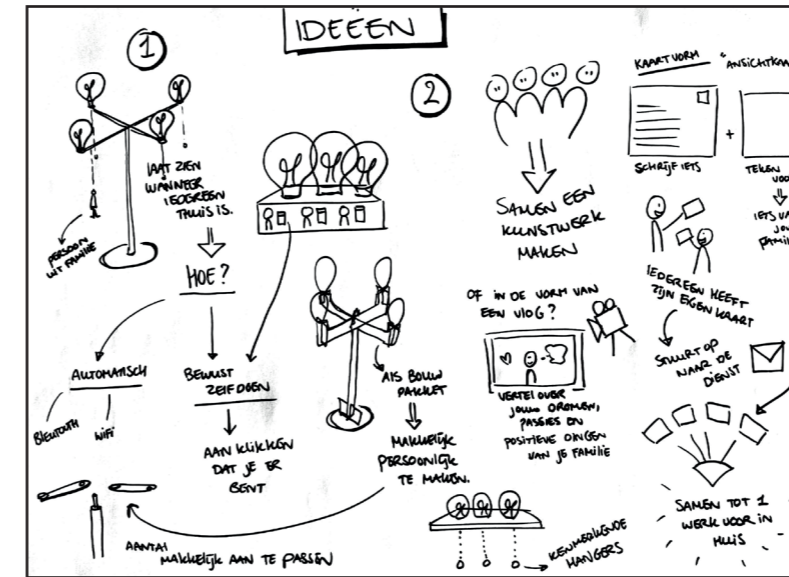 IDEEEN
1
LAAT ZIEN
WANNEER
IEDEREEN
THUIS IS.
PERSOON
UIT FAMILIE
HOE?
AUTOMATISCH
BLEUTOUTH
WIFI
BEWUST
ZELF DOEN
AAN KLIKKEN
DAT JE ER
BENT
ALS BOUW
PAKKET
MAKKELIJK
PERSOONLIJK
TE MAKEN.
AANTAL
MAKKELIJK AAN TE PASSEN
2
SAMEN EEN
KUNSTWERK
MAKEN
OF IN DE VORM VAN
EEN VLOG?
VERTEL OVER
JOUW DROMEN,
PASSIES EN
POSITIEVE DINGEN
VAN JE FAMILIE
KENMERKENDE
HANGERS
KAARTVORM
"ANSICHTKAA
+
SCHRIJF IETS
TEKEN
VOO
IETS VA
JOU
FAMIL
IEDEREEN HEEFT
ZIJN EIGEN KAART
STUURT OP
NAAR DE
DIENST
SAMEN TOT 1
WERK VOOR IN
HUIS